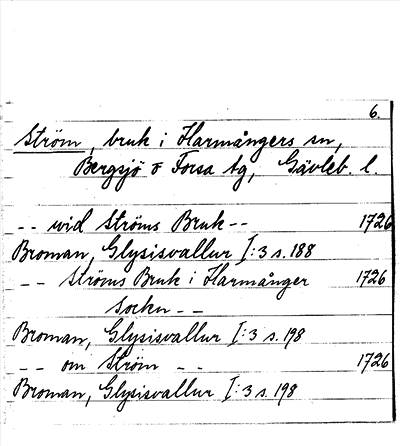 6.
Ström, bruk i Harmångers sn,
Bergsjö o Forsa tg, Gävleb. l.
-- wid Ströms Bruk -- 1726
Broman, Glysisvallur I:3 s. 188
-- Ströms Bruk i Harmånger 1726
Sockn --
Broman, Glysisvallur I:3 s. 198
-- om Ström -- 1726
Broman, Glysisvallur I:3 s. 198